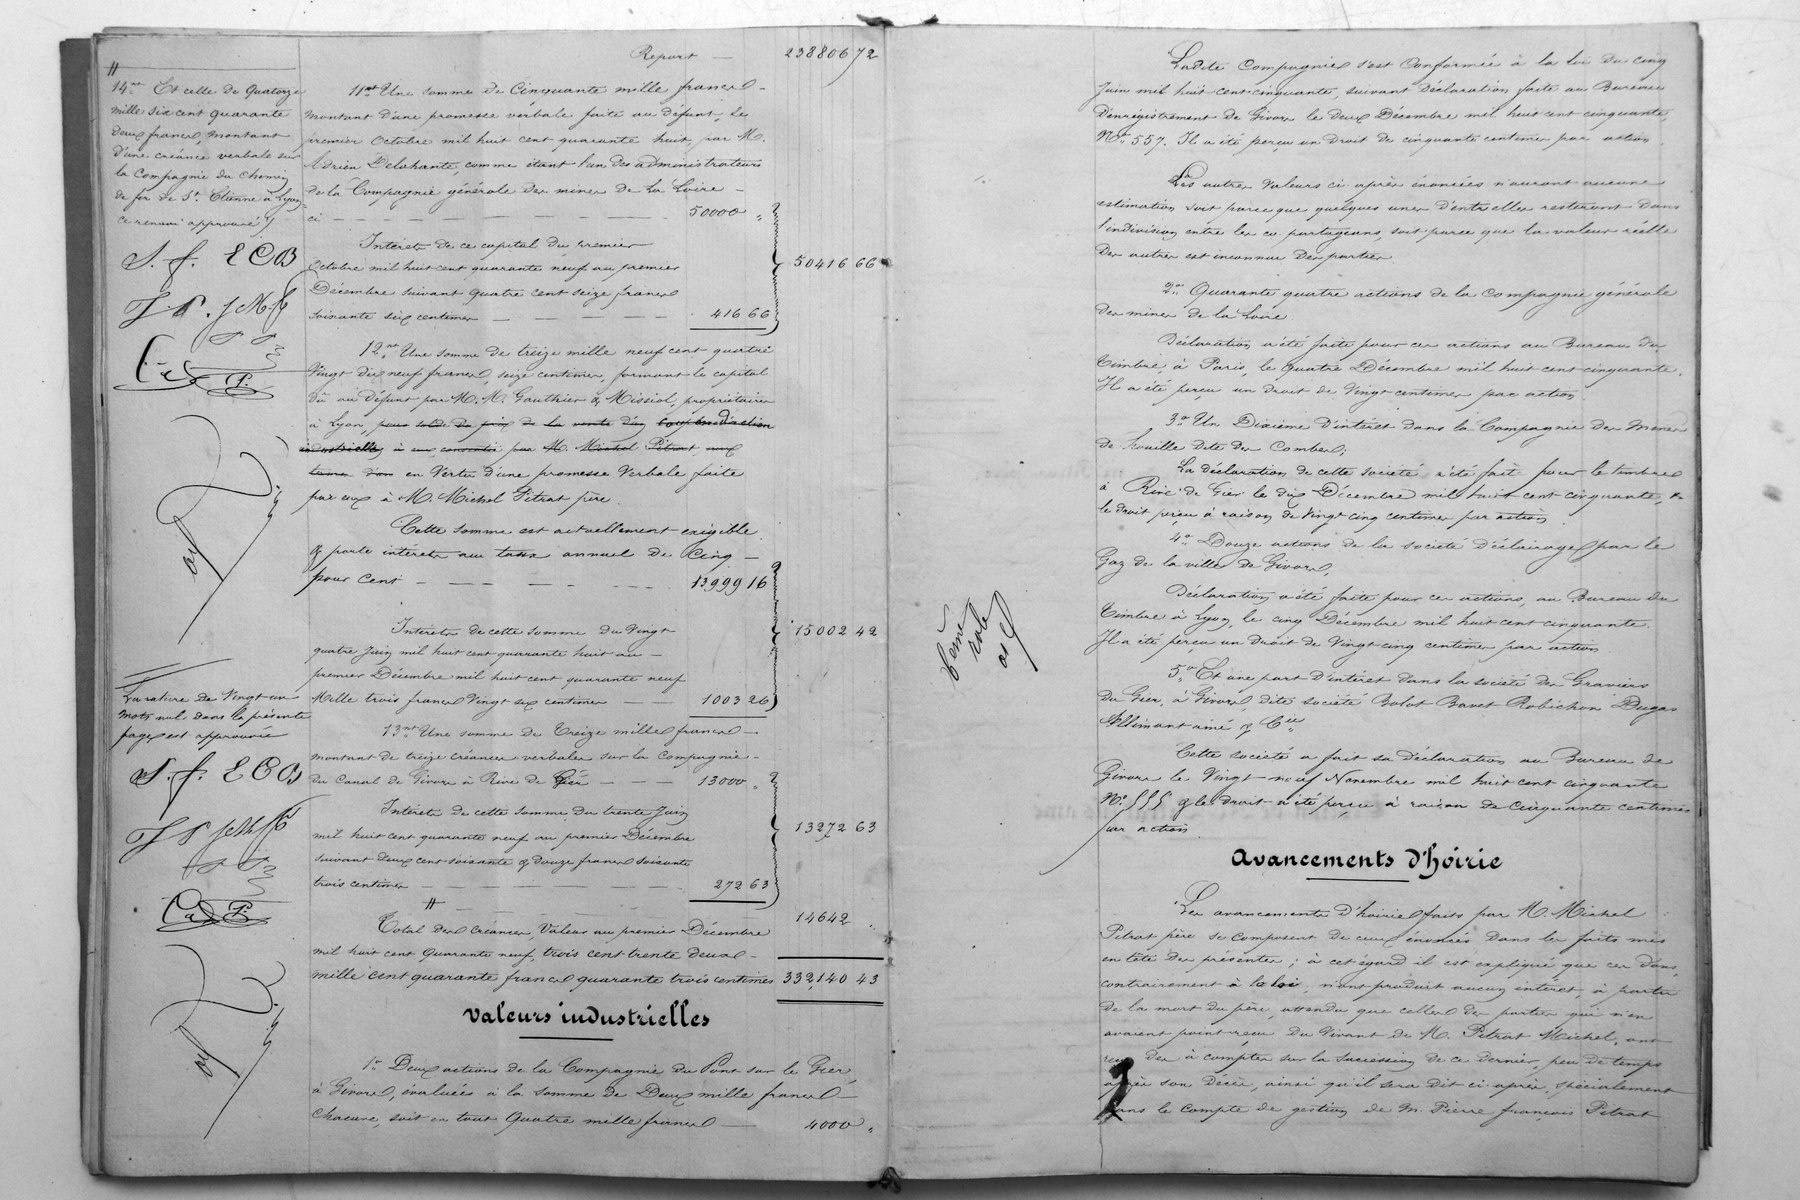 Report — 238806 72
14ent Et celle de Quatorze
mille six cent quarante
deux francs, montant
d'une créance verbale sur
la Compagnie du chemin
de fer de St. Etienne à Lyon,
ce renvoi approuvé
S. f. E C B
11ent Une somme de Cinquante mille francs
montant d'une promesse verbale faite au défunt, le
premier Octobre mil huit cent quarante huit, par M.
Adrien Delahante, comme étant l'un des administrateurs
de la Compagnie générale des mines de la Loire
ci — 50000 "
Intérêts de ce capital du premier
Octobre mil huit cent quarante neuf au premier
Décembre suivant quatre cent seize francs
soixante six centimes — 416 66
50416 66
12ent Une somme de treize mille neuf cent quatre
vingt dix neuf francs, seize centimes, formant le capital
dû au défunt par M. M. Gauthier & Missiol, propriétaires
à Lyon, pour solde du prix de la vente d'un coupon d'action
industrielle à eux consentie par M. Michel Pitrat
en vertu d'une promesse verbale faite
par eux à M. Michel Pitrat père.
Cette somme est actuellement exigible
& porte intérêts au taux annuel de Cinq
pour cent — 13999 16
Intérêts de cette somme du vingt
quatre Juin mil huit cent quarante huit au
premier Décembre mil huit cent quarante neuf
Mille trois francs vingt six centimes — 1003 26
15002 42
La rature de vingt un
mots nuls dans la présente
page est approuvée
S. f. E C B
13ent Une somme de Treize mille francs
montant de treize créances verbales sur la Compagnie
du Canal de Givors à Rive de Gier — 13000 "
Intérêts de cette somme du trente Juin
mil huit cent quarante neuf au premier Décembre
suivant deux cent soixante & douze francs soixante
trois centimes — 272 63
13272 63
14642 "
Total des créances, valeur au premier Décembre
mil huit cent quarante neuf, trois cent trente deux
mille cent quarante francs quarante trois centimes 332,140 43
Valeurs industrielles
1° Deux actions de la Compagnie du Pont sur le Gier,
à Givors, évaluées à la somme de Deux mille francs
chacune, soit en tout Quatre mille francs — 4000 "
6eme
role
Ladite Compagnie s'est conformée à la loi du cinq
Juin mil huit cent cinquante, suivant déclaration faite au Bureau
d'enregistrement de Givors le deux Décembre mil huit cent cinquante,
No. 557. Il a été perçu un droit de cinquante centimes par action.
Les autres valeurs ci-après énoncées n'auront aucune
estimation soit parce que quelques unes d'entr'elles resteront dans
l'indivision entre les co-partageans, soit parce que la valeur réelle
des autres est inconnue des parties.
2° Quarante quatre actions de la Compagnie générale
des mines de la Loire
Déclaration a été faite pour ces actions au Bureau du
Timbre, à Paris, le quatre Décembre mil huit cent cinquante.
Il a été perçu un droit de vingt centimes par action.
3° Un Dixième d'intérêt dans la Compagnie des Mines
de houille dite des Combes,
La déclaration de cette société a été faite pour le timbre
à Rive de Gier le dix Décembre mil huit cent cinquante, &
le droit perçu à raison de vingt cinq centimes par action.
4° Douze actions de la société d'éclairage par le
Gaz de la ville de Givors,
Déclaration a été faite pour ces actions, au Bureau du
Timbre à Lyon, le cinq Décembre mil huit cent cinquante.
Il a été perçu un droit de vingt cinq centimes par action
5° Et une part d'intérêt dans la société des Graviers
du Gier, à Givors, dite société Bolot Bavet Robichon Dugas
Allimant ainé & Cie
Cette société a fait sa déclaration au Bureau de
Givors le vingt-neuf Novembre mil huit cent cinquante
No. 555 & le droit a été perçu à raison de cinquante centimes
par action.
Avancements d'hoirie
Les avancements d'hoirie faits par M. Michel
Pitrat père se composent de ceux énoncés dans les faits mis
en tête des présentes ; à cet égard il est expliqué que ces dons
contrairement à la loi, n'ont produit aucun intérêt, à partir
de la mort du père, attendu que celles des parties qui n'en
avaient point reçu du vivant de M. Pitrat Michel, ont
reçu des à comptes sur la succession de ce dernier, peu de temps
après son décès, ainsi qu'il sera dit ci-après, spécialement
dans le compte de gestion de M. Pierre françois Pitrat